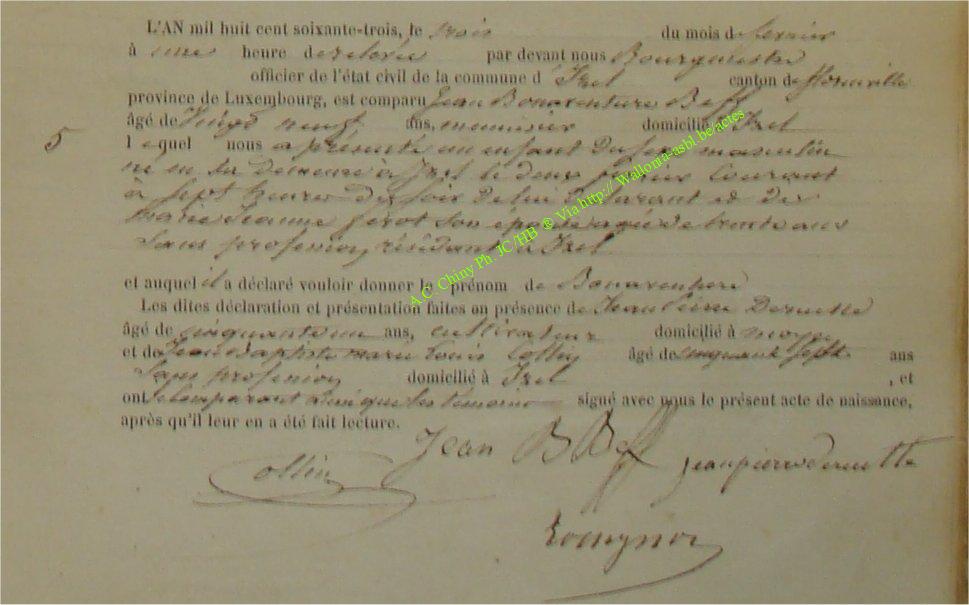 L'AN mil huit cent soixante-trois, le trois du mois de fevrier
à une heure de relevée par devant nous Bourgmestre
officier de l'état civil de la commune d'Izel canton de florenville
province de Luxembourg, est comparu Jean Bonaventure Beff
âgé de Vingt neuf ans, menuisier domicilié à Izel
5 lequel nous a présenté un enfant du sexe masculin
né en sa demeure à Izel le deux fevrier Courant
à sept heures du soir de lui Déclarant et de
Marie Jeanne son épouse agée de trente ans
Sans profession, résidant à Izel
et auquel il a déclaré vouloir donner le prénom de Bonaventure
Les dites déclaration et présentation faites en présence de Jean Pierre Dernette
âgé de cinquante un ans, cultivateur domicilié à moyen
et de Jean Baptiste marie Louis Collin âgé de cinquante sept ans
Sans profession domicilié à Izel , et
ont le Comparant ainsi que les témoins signé avec nous le présent acte de naissance,
après qu'il leur en a été fait lecture.
Jean B Beff
Collin jeanpierre Dernette
A.C. Chiny Ph. JC /HB ® Via http:// Wallonia-asbl.be/actes